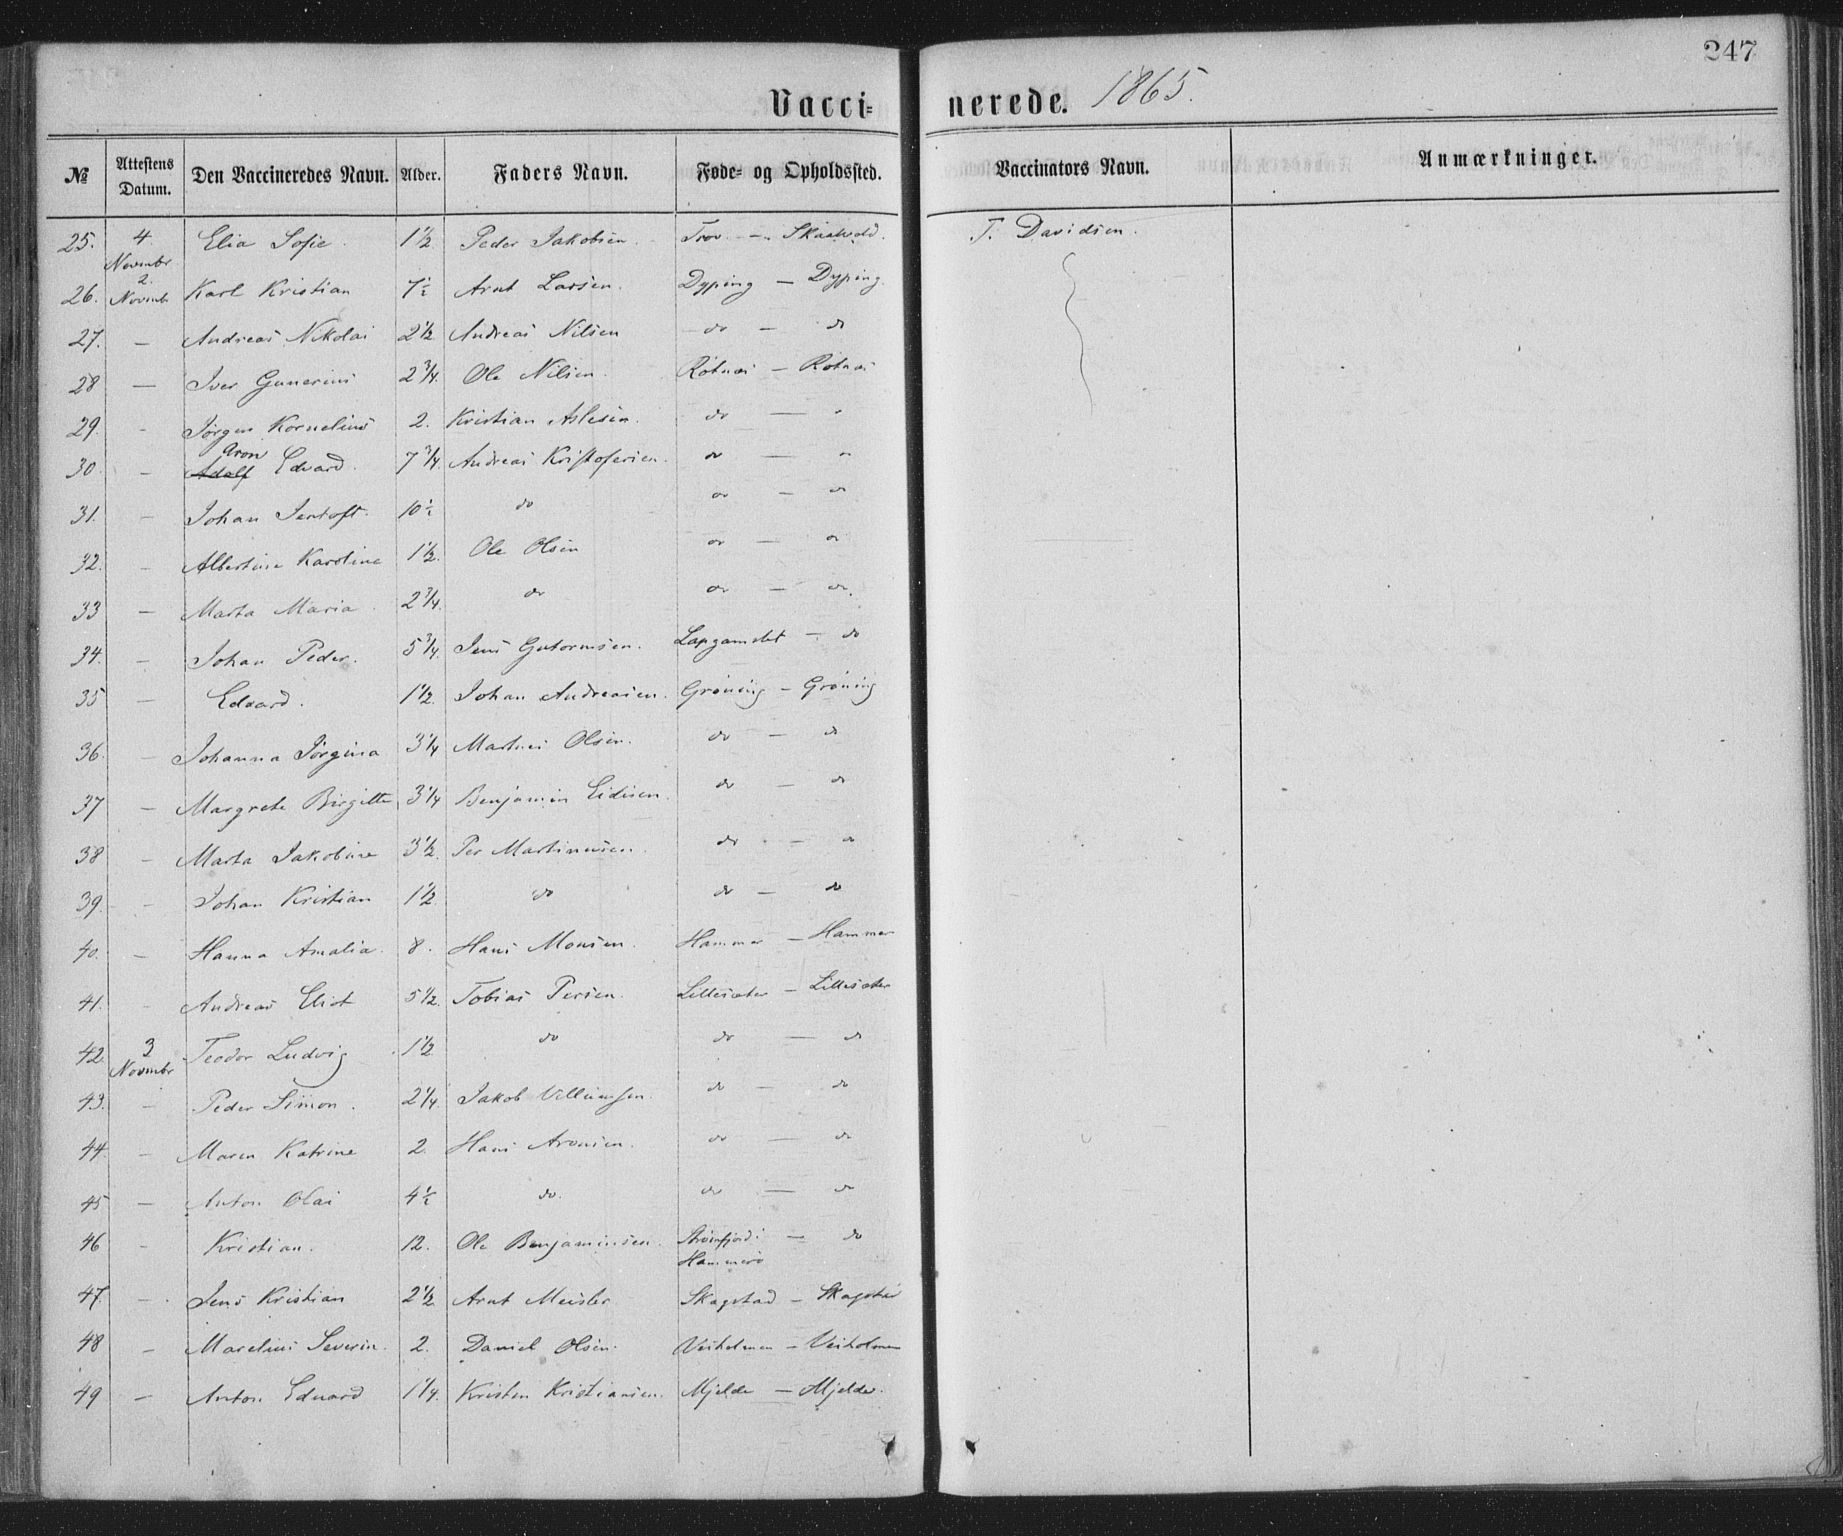 247
Vacci= nerede. 1865.
№ Attestens Datum. Den Vaccineredes Navn. Alder. Faders Navn. Føde= og Opholdssted. Vaccinators Navn. Anmærkninger.
25. 4 Novembr Elia Sofie. 1½ Peder Jakobsen. Trov — Skaalvold. T. Davidsen.
26. 2. Novembr Karl Kristian 7½ Arnt Larsen. Dyping — Dyping.
27. — Andreas Nikolai 2½ Andreas Nilsen do — do
28 — Iver Gunerius 2¾. Ole Nilsen. Rotnæs — Rotnæs
29. - Jørgen Kornelius 2. Kristian Aslesen. do — "
30. - Adolf Aron Edvard. 7¾. Andreas Kristofersen. do — do
31. - Johan Jentoft. 10½ do do — do
32. - Albertine Karoline 1½. Ole Olsen do — do
33 — Marta Maria. 2¾. do do — do.
34. - Johan Peder. 5¾. Jens Gutormsen. Lapgamslet — do
35 — Edvard. 1½. Johan Andreasen. Grøning — Grøning
36. - Johanna Jørgina 3¼ Martnes Olsen. do — do
37 — Margrete Birgitte 3¼ Benjamin Eidisen. do — do
38 - Marta Jakobine 3½. Per Martinusen. do — do
39. - Johan Kristian 1½. do do — do
40. - Hanna Amalia. 8. Hans Monsen. Hammer — Hammer
41. - Andreas Eliot 5½. Tobias Persen. Lillesæter — Lillesæter
42 3 Novmbr Teodor Ludvig 1½ do do — do
43. - Peder Simon. 2¼ Jakob Villumsen. do — do
44. - Maren Katrine 2. Hans Aronsen. do — do
45 — Anton Olai 4½ do. do — do
46 - Kristian. 12. Ole Benjaminsen. Strømfjord i Hammerø — do
47. - Jens Kristian 2½ Arnt Meisler Skagstad — Skagstad
48 - Marelius Severin. 2. Daniel Olsen. Veiholmen — Veiholmen
49 - Anton Edvard 1¼. Kristen Kristiansen. Mjelde — Mjelde.